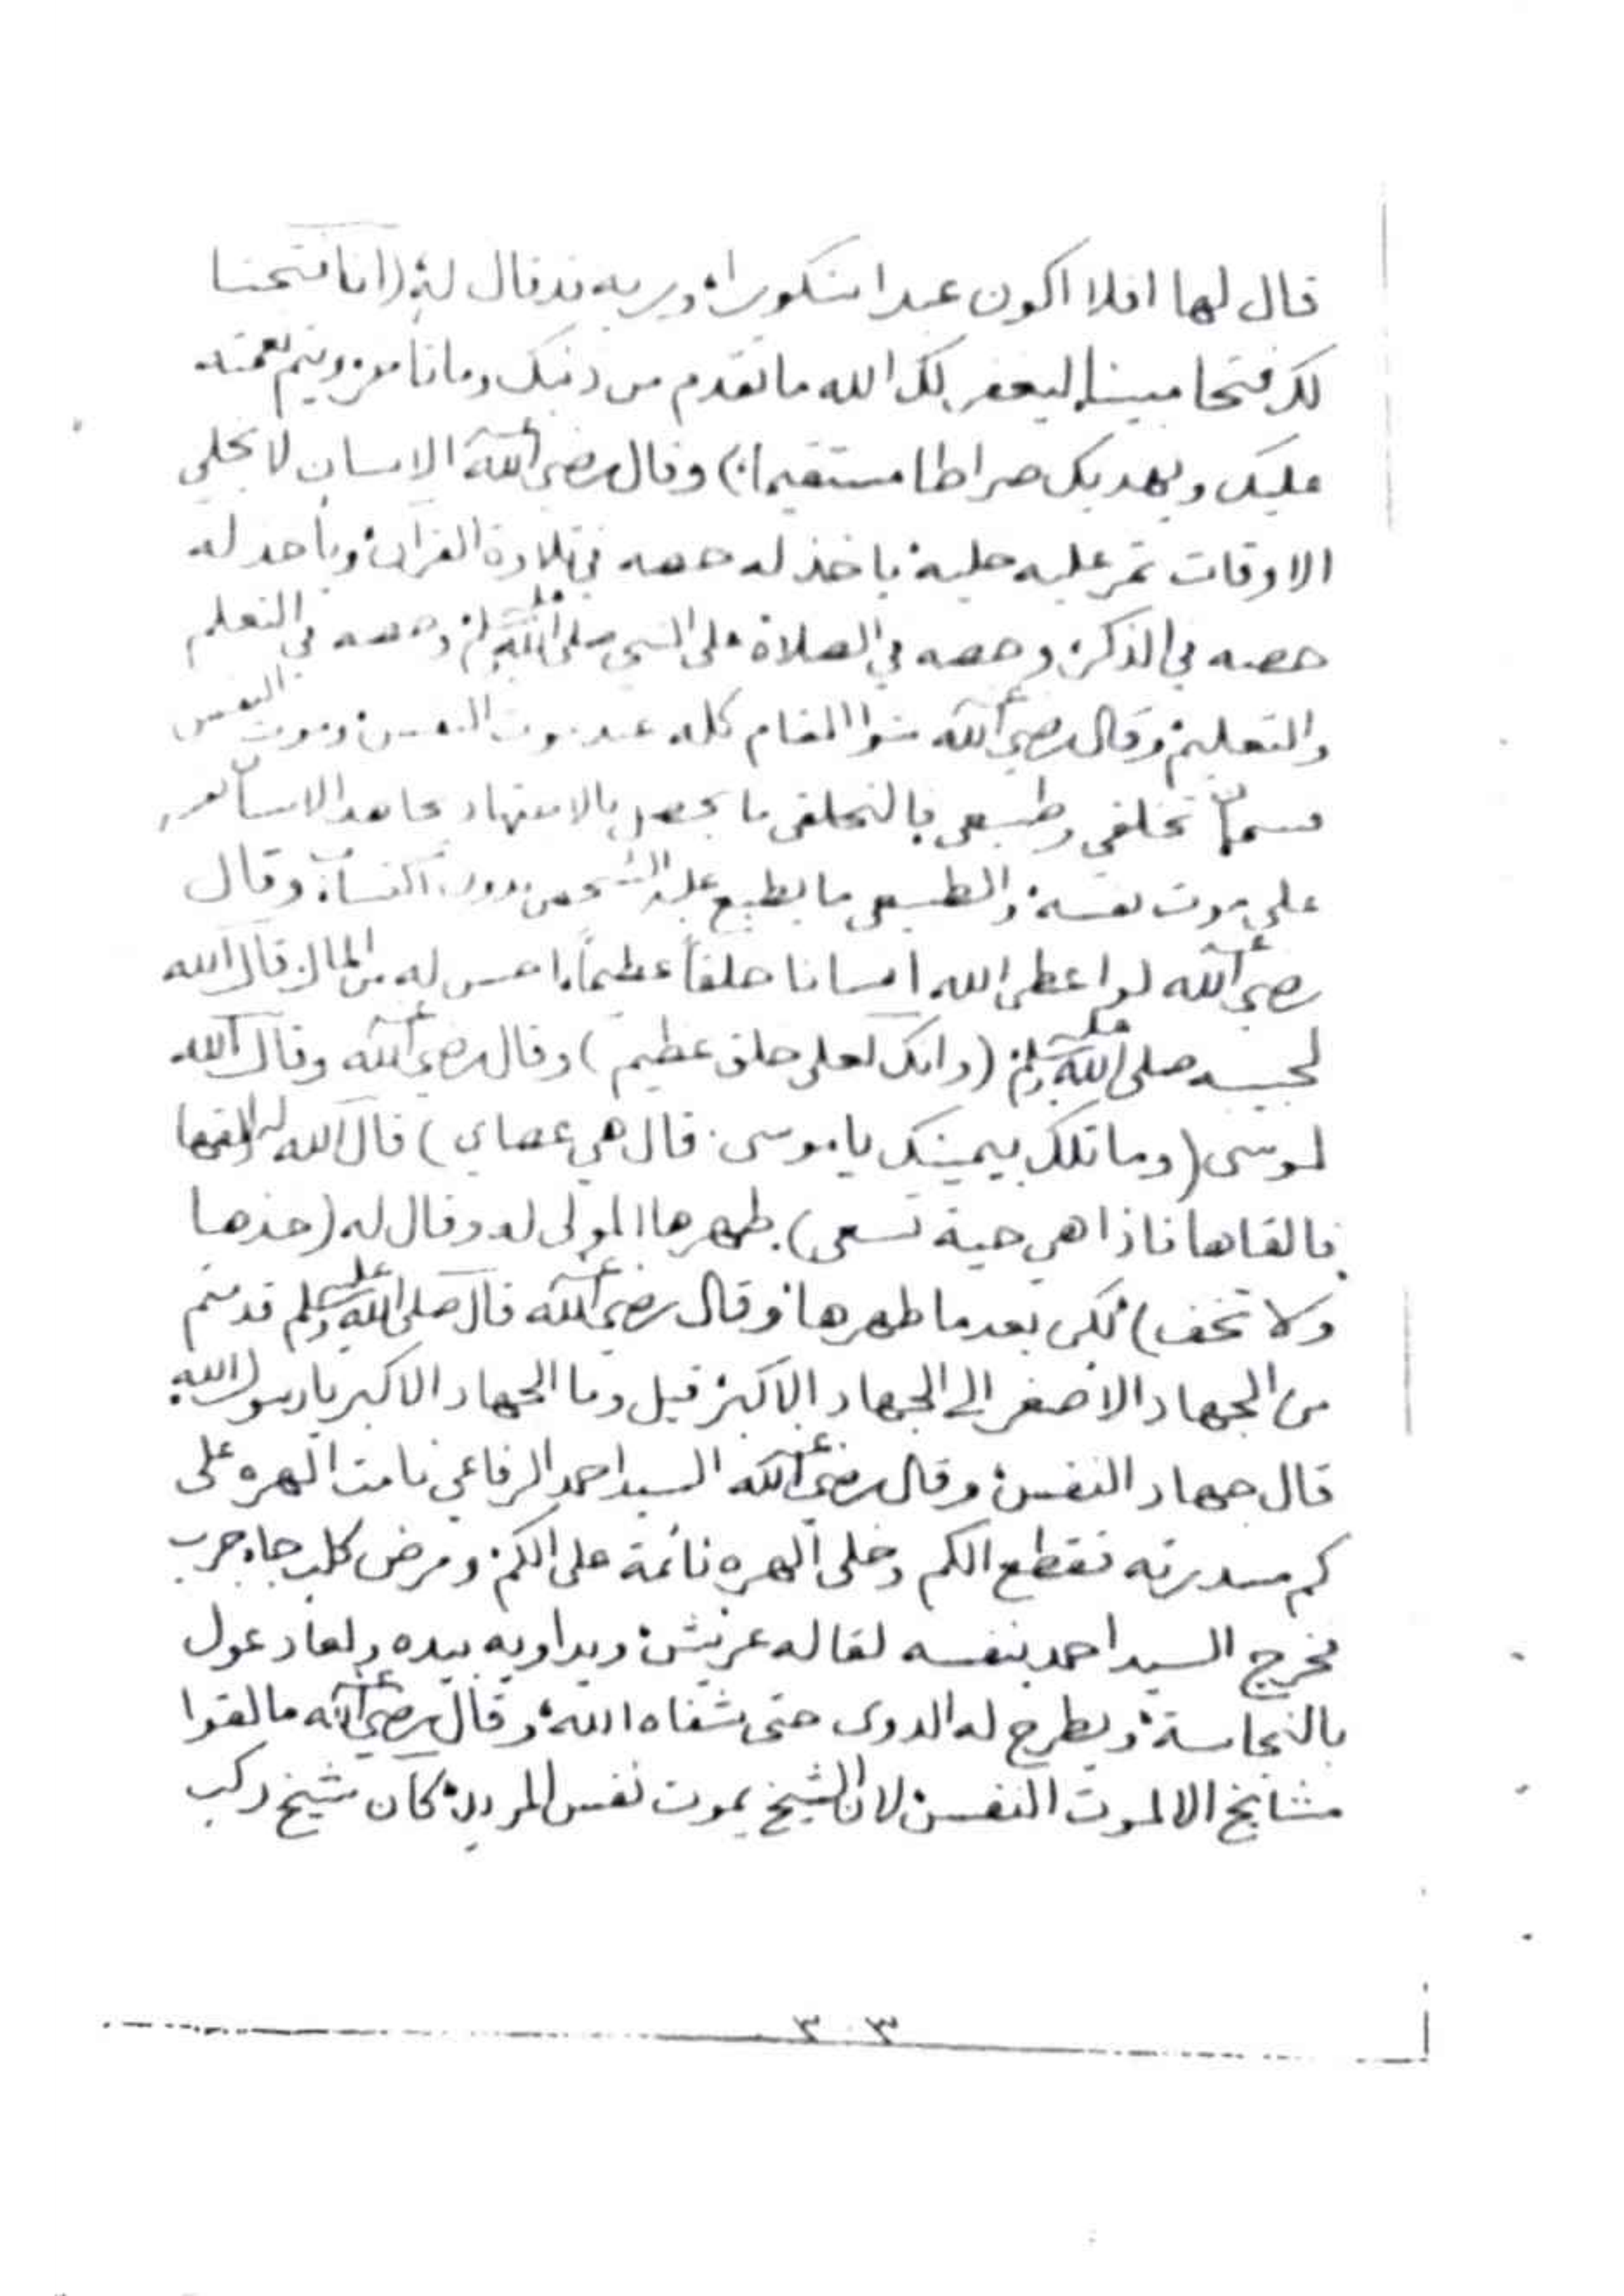 قال لها افلا اكون عبدا شكورا؛ وربه قد قال له؛ (انا فتحنا
لك فتحا مبينا. ليغفر لك الله ما تقدم من ذنبك وما تأخر ويتم نعمته
عليك ويهديك صراطا مستقيما؛) وقال رضي الله عنه الانسان لا يخلي
الاوقات تمر عليه خلية؛ ياخذ له حصه في تلاوة القرآن؛ وياخذ له
حصه في الذكر؛ وحصه في الصلاة على النبي صلى الله عليه وسلم؛ وحصه في التعلم
والتعليم؛ وقال رضي الله عنه المقام كله عند موت النفس؛ وموت النفس
قسمان تخلقي وطبيعي فالتخلقي ما يحصل بالاجتهاد يجاهد الانسان
على موت نفسه؛ والطبيعي ما يطبع عليه الشخص بدون اكتساب؛ وقال
رضي الله عنه لو اعطى الله انسانا خلقاً عظيماً. احسن له من المال. قال الله
لحبيبه صلى الله عليه وسلم؛ (وانك لعلى خلق عظيم) وقال رضي الله عنه وقال الله
لموسى (وما تلك بيمينك يا موسى. قال هي عصاي) قال الله له القها
فالقاها فاذا هي حية تسعى). طهرها المولى له وقال له (خذها
ولا تخف) لكن بعد ما طهرها؛ وقال رضي الله عنه قال صلى الله عليه وسلم قدمتم
من الجهاد الاصغر الى الجهاد الاكبر؛ قيل وما الجهاد الاكبر يا رسول الله.
قال جهاد النفس؛ وقال رضي الله عنه السيد احمد الرفاعي نامت الهره على
كم سدريته فقطع الكم وخلى الهره نائمة على الكم؛ ومرض كلب جاه جرب
فخرج السيد احمد بنفسه لقا له عريش؛ ويداويه بيده
بالنجاسة؛ ويطرح له الدوى حتى شفاه الله؛ وقال رضي الله عنه ما لقوا
مشايخ الا لموت النفس؛ لان الشيخ يموت نفس المريد؛ كان شيخ ركب
٣٠٣